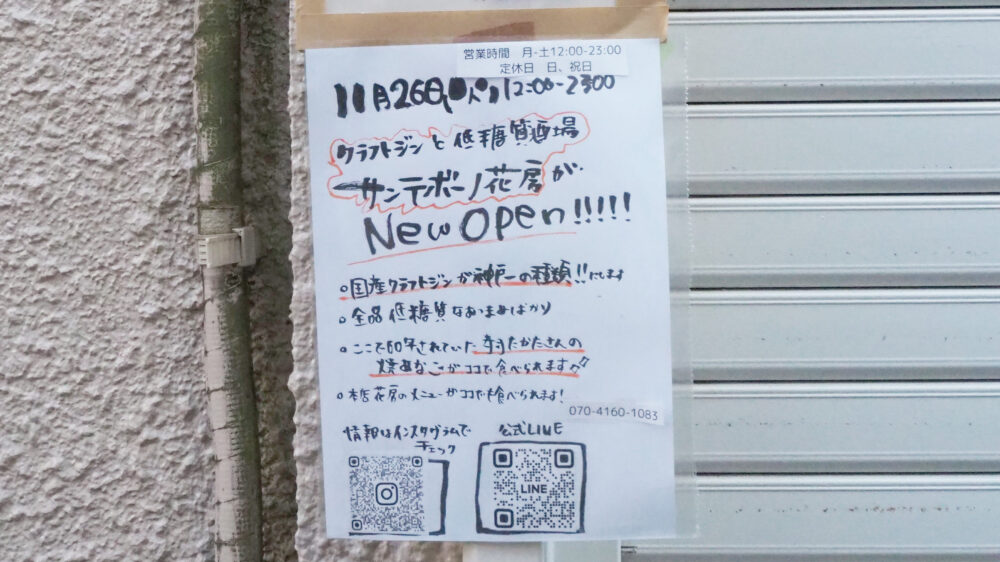 営業時間 月-土12:00-23:00
定休日 日、祝日
11月26日(火)12:00-23:00
クラフトジンと低糖質酒場
サンテボーノ花房が
New Open!!!!!
国産クラフトジンが神戸一の種類!!にします
全品低糖質なおつまみばかり
ここで60年されていた たかたさんの
焼あなごがココで食べられます
本店花房のメニューがココでも食べられます!
070-4160-1083
情報はインスタグラムで
チェック
公式LINE
LINE